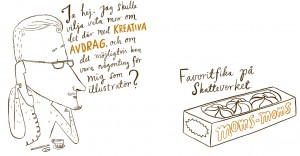 Ja hej. Jag skulle
vilja veta mer om
det där med KREATIVA
AVDRAG, och om
det möjligtvis kan
vara någonting för
mig som
illustratör?
Favoritfika på
Skatteverket
moms-moms